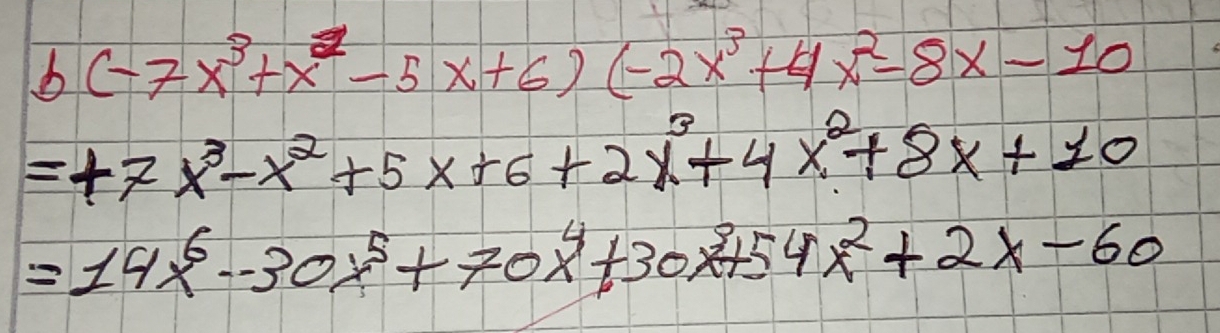 b (-7x³+x²-5x+6) (-2x³+4x²-8x-10
=+7x³-x²+5x+6+2x³+4x²+8x+10
=14x⁶-30x⁵+70x⁴+30x³+54x²+2x-60